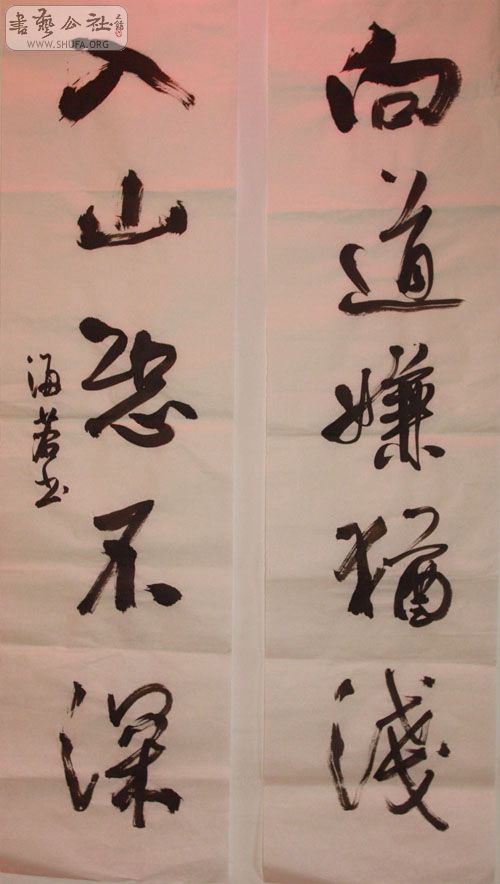 向道嫌猶淺
入山恐不深
海若书
書藝公社
WWW.SHUFA.ORG